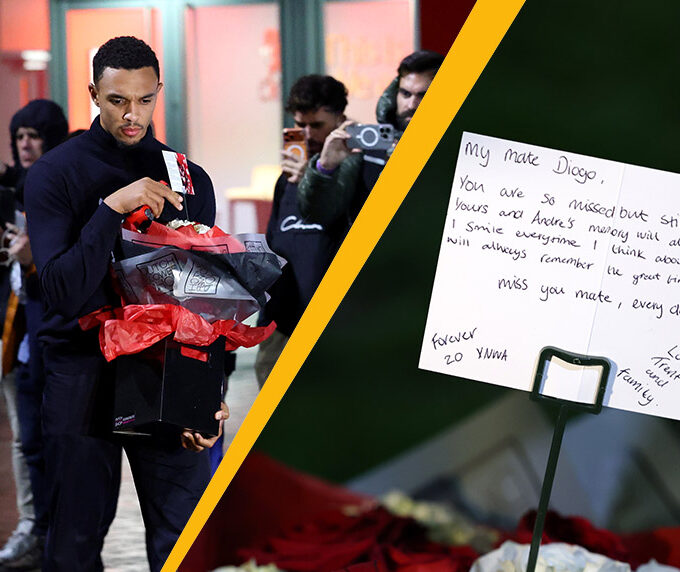 My mate Diogo,
You are so missed but sti
Yours and André's memory will al
I smile everytime I think abou
will always remember the great
miss you mate, every d
Forever
20 YNWA
Lo
Trent
and
family.